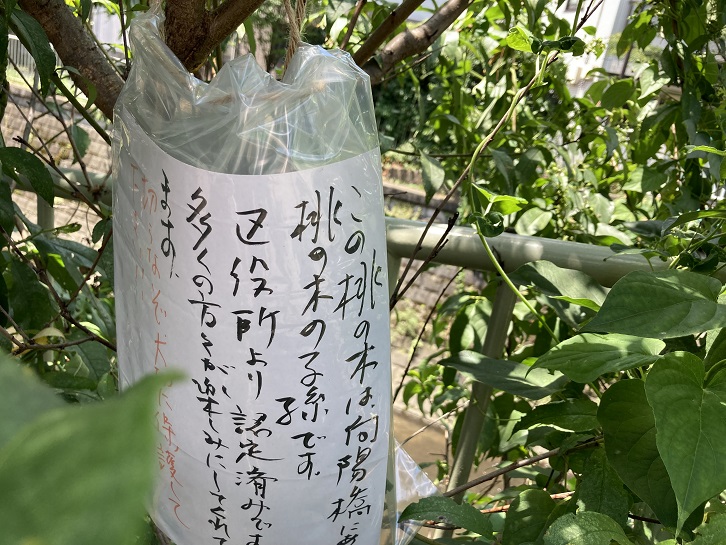 この桃の木は、向陽橋に
桃の木の子孫です。
区役所より認定済みです
多くの方々が楽しみにしてくれて
ます。
切らないで大切に保護して